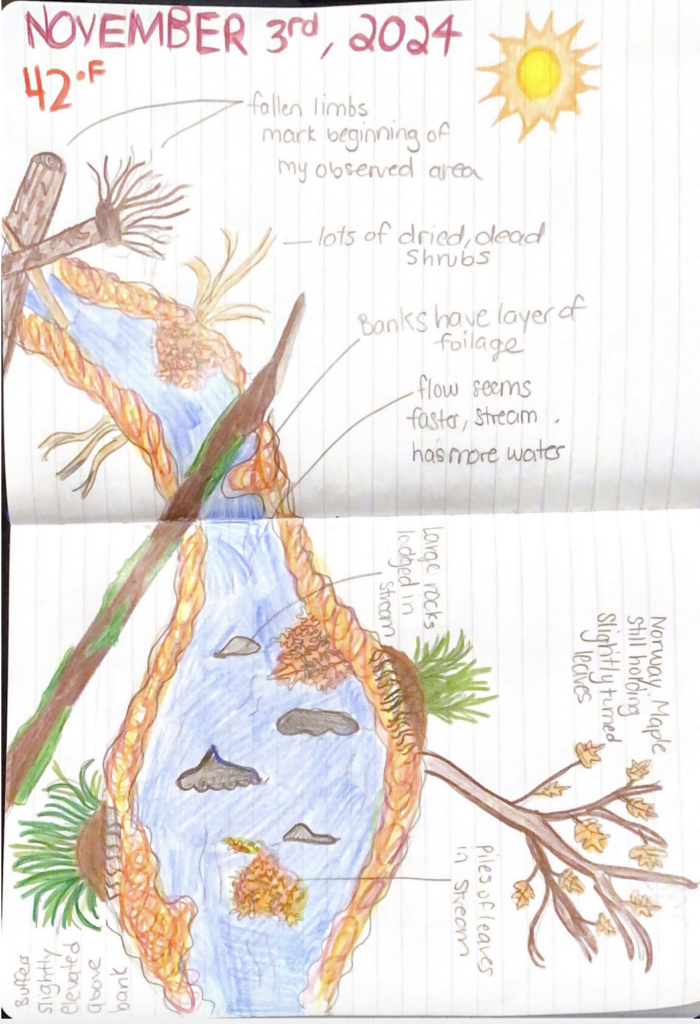 NOVEMBER 3rd, 2024
42°F
fallen limbs
mark beginning of
my observed area
lots of dried, dead
shrubs
Banks have layer of
foilage
flow seems
faster, stream
has more water
Large rocks
lodged in
stream
Norway Maple
still holding
slightly turned
leaves
piles of leaves
in stream
Buffers
slightly
elevated
above
bank